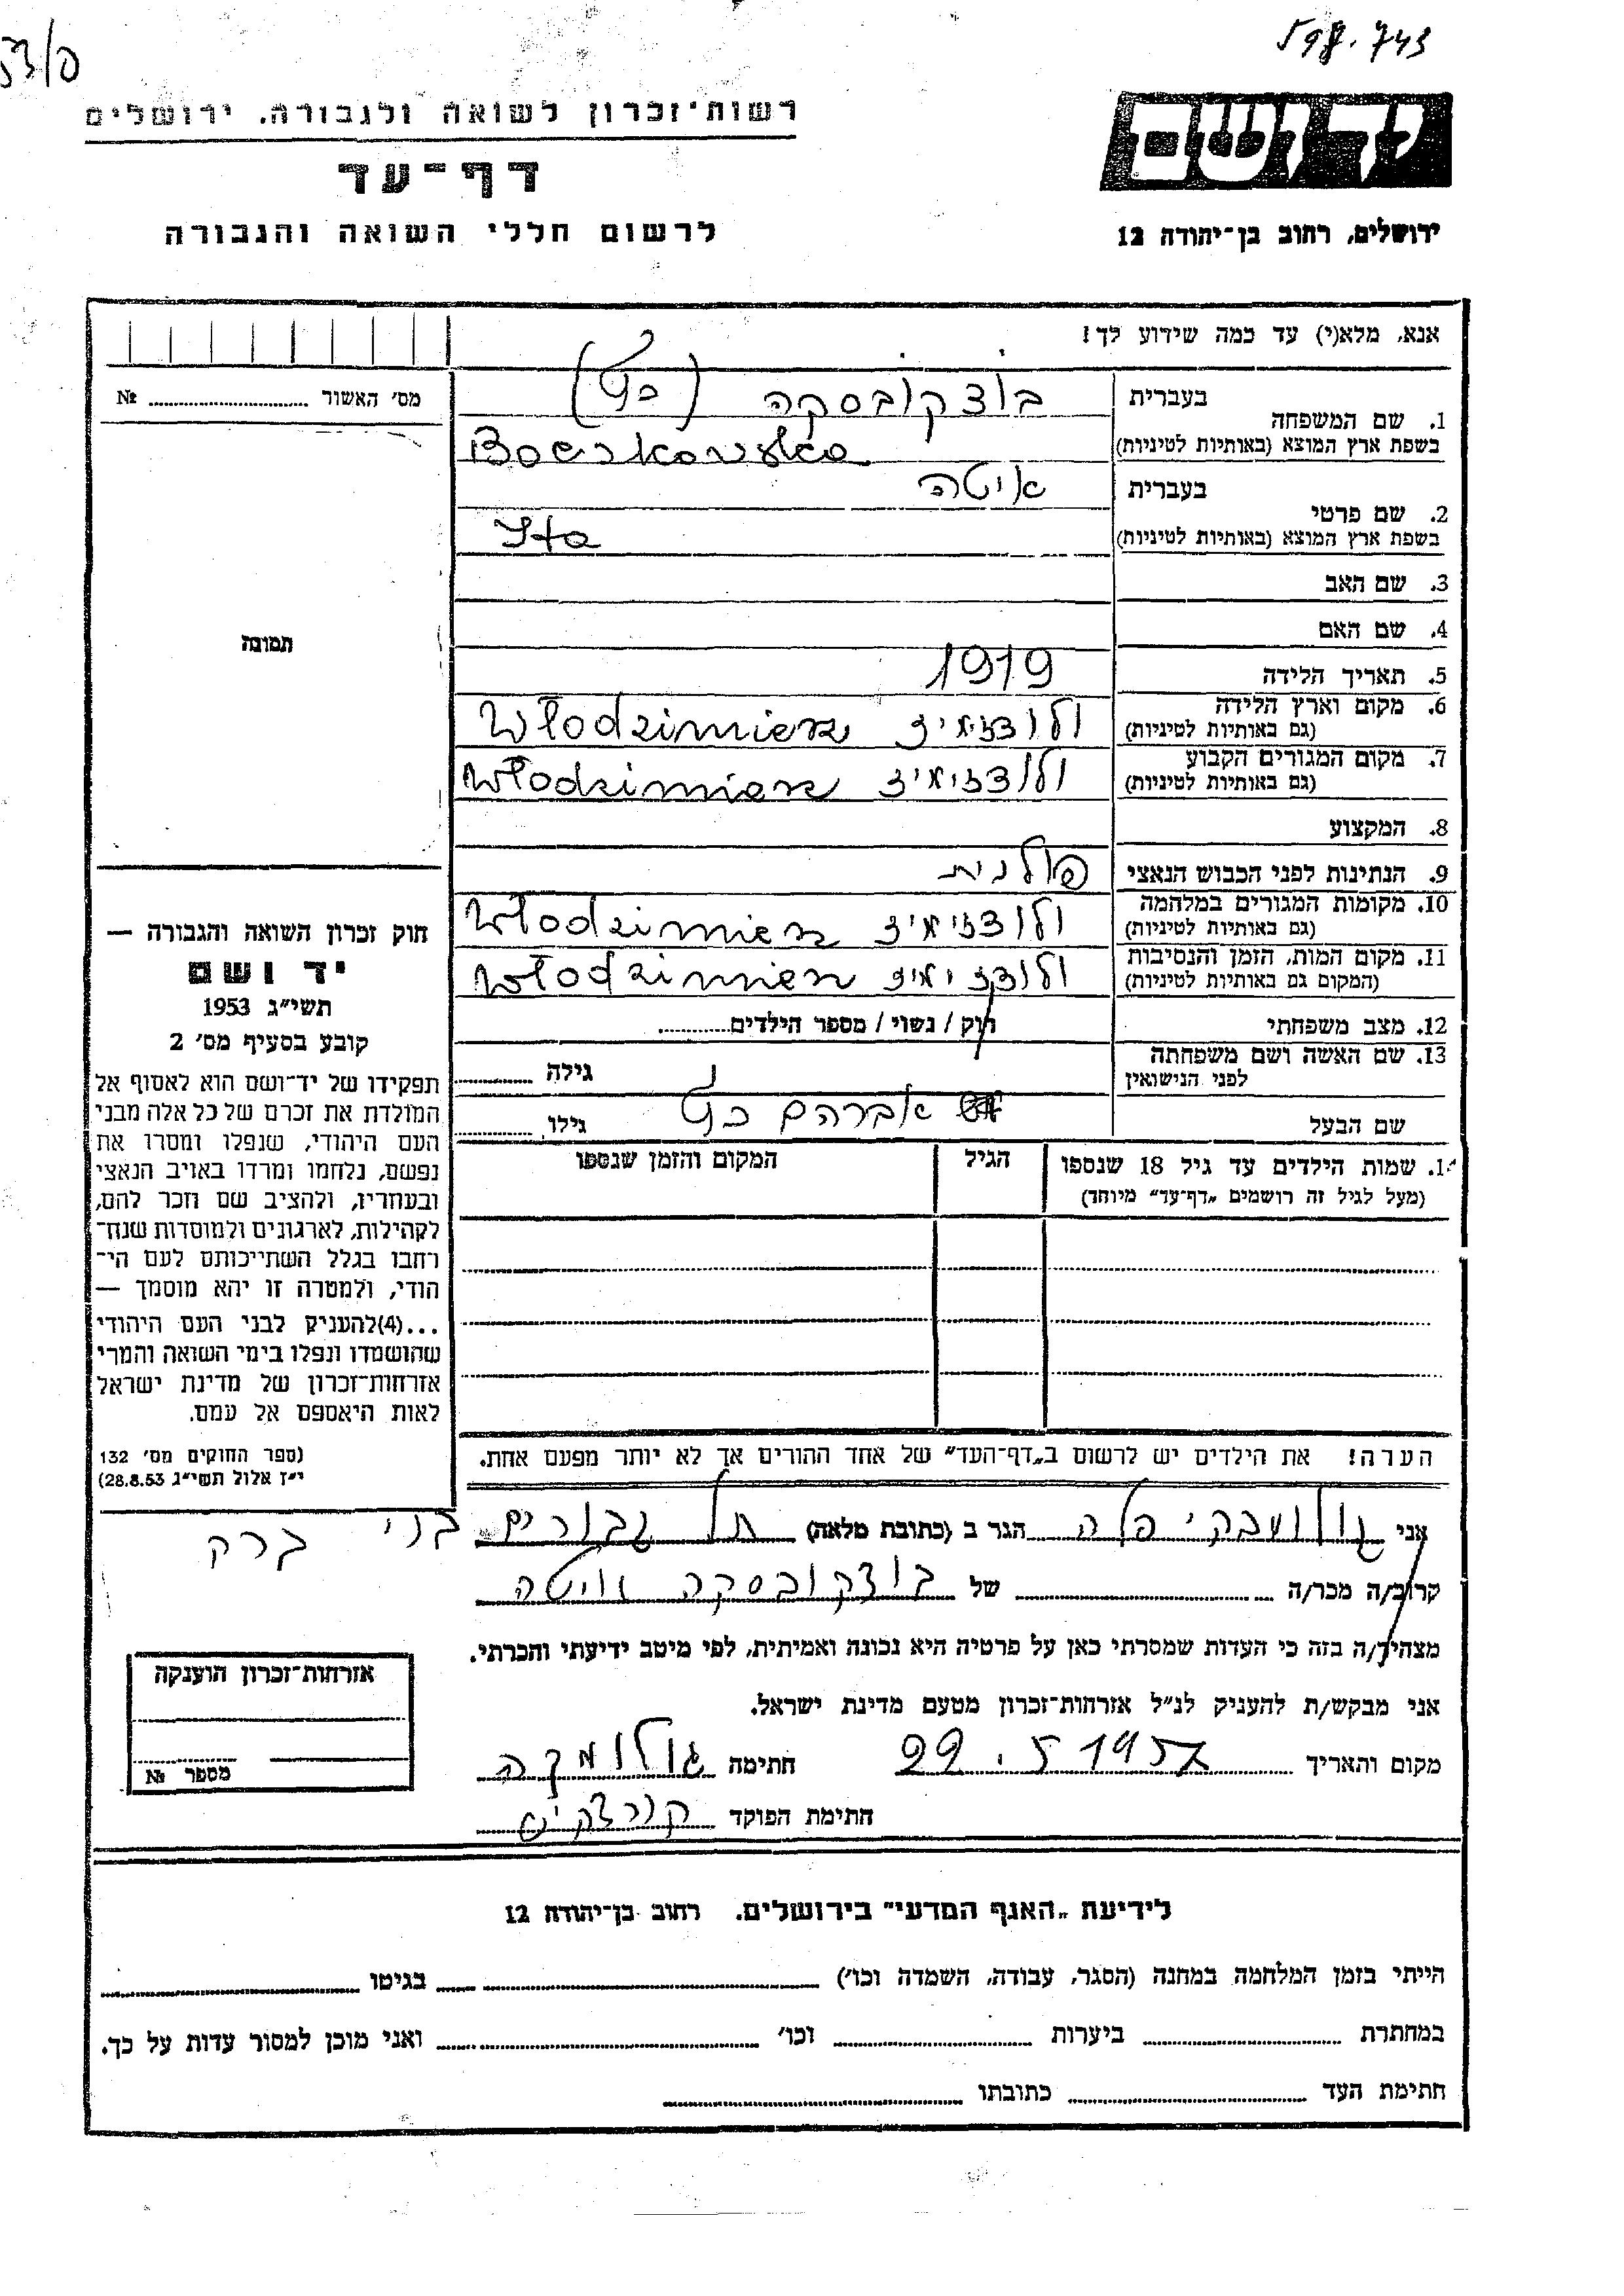 598.743
רשות־זכרון לשואה ולגבורה, ירושלים
יד ושם
דף־עד
לרשום חללי השואה והגבורה
ירושלים, רחוב בן־יהודה 12
אנא, מלא(י) עד כמה שידוע לך!
מס׳ האשור ........ №
1. שם המשפחה
בעברית בוצקובסקה
בשפת ארץ המוצא (באותיות לטיניות)
2. שם פרטי
בעברית איטה
בשפת ארץ המוצא (באותיות לטיניות) Ita
3. שם האב
4. שם האם
תמונה
5. תאריך הלידה 1919
6. מקום וארץ הלידה (גם באותיות לטיניות) ולודזימיז Włodzimierz
7. מקום המגורים הקבוע (גם באותיות לטיניות) ולודזימיז Włodzimierz
8. המקצוע
9. הנתינות לפני הכבוש הנאצי פולנית
10. מקומות המגורים במלחמה (גם באותיות לטיניות) ולודזימיז Włodzimierz
11. מקום המות, הזמן והנסיבות (המקום גם באותיות לטיניות) ולודזימיז Włodzimierz
12. מצב משפחתי רוק / נשוי / מספר הילדים........
13. שם האשה ושם משפחתה לפני הנישואין גילה ........
שם הבעל אברהם גילו ........
שמות הילדים עד גיל 18 שנספו הגיל המקום והזמן שנספו
(מעל לגיל זה רושמים „דף־עד״ מיוחד)
הערה! את הילדים יש לרשום ב„דף־העד״ של אחד ההורים אך לא יותר מפעם אחת.
חוק זכרון השואה והגבורה —
יד ושם
תשי״ג 1953
קובע בסעיף מס׳ 2
תפקידו של יד־ושם הוא לאסוף אל
המולדת את זכרם של כל אלה מבני
העם היהודי, שנפלו ומסרו את
נפשם, נלחמו ומרדו באויב הנאצי
ובעוזריו, ולהציב שם וזכר להם,
לקהילות, לארגונים ולמוסדות שנח־
רבו בגלל השתייכותם לעם הי־
הודי, ולמטרה זו יהא מוסמך —
...(4)להעניק לבני העם היהודי
שהושמדו ונפלו בימי השואה והמרי
אזרחות־זכרון של מדינת ישראל
לאות היאספם אל עמם.
(ספר החוקים מס׳ 132
י״ז אלול תשי״ג 28.8.53)
אני הגר ב (כתובת מלאה) תל גבורים בני ברק
קרוב/ה מכר/ה ........ של בוצקובסקה איטה
מצהיר/ה בזה כי העדות שמסרתי כאן על פרטיה היא נכונה ואמיתית, לפי מיטב ידיעתי והכרתי.
אני מבקש/ת להעניק לנ״ל אזרחות־זכרון מטעם מדינת ישראל.
מקום והתאריך ........ 29.5 1957 חתימה
חתימת הפוקד
אזרחות־זכרון הוענקה
מספר №
לידיעת „האגף המדעי״ בירושלים. רחוב בן־יהודה 12
הייתי בזמן המלחמה במחנה (הסגר, עבודה, השמדה וכו׳) ........ בגיטו ........
במחתרת ........ ביערות ........ וכו׳ ........ ואני מוכן למסור עדות על כך.
חתימת העד ........ כתובתו ........